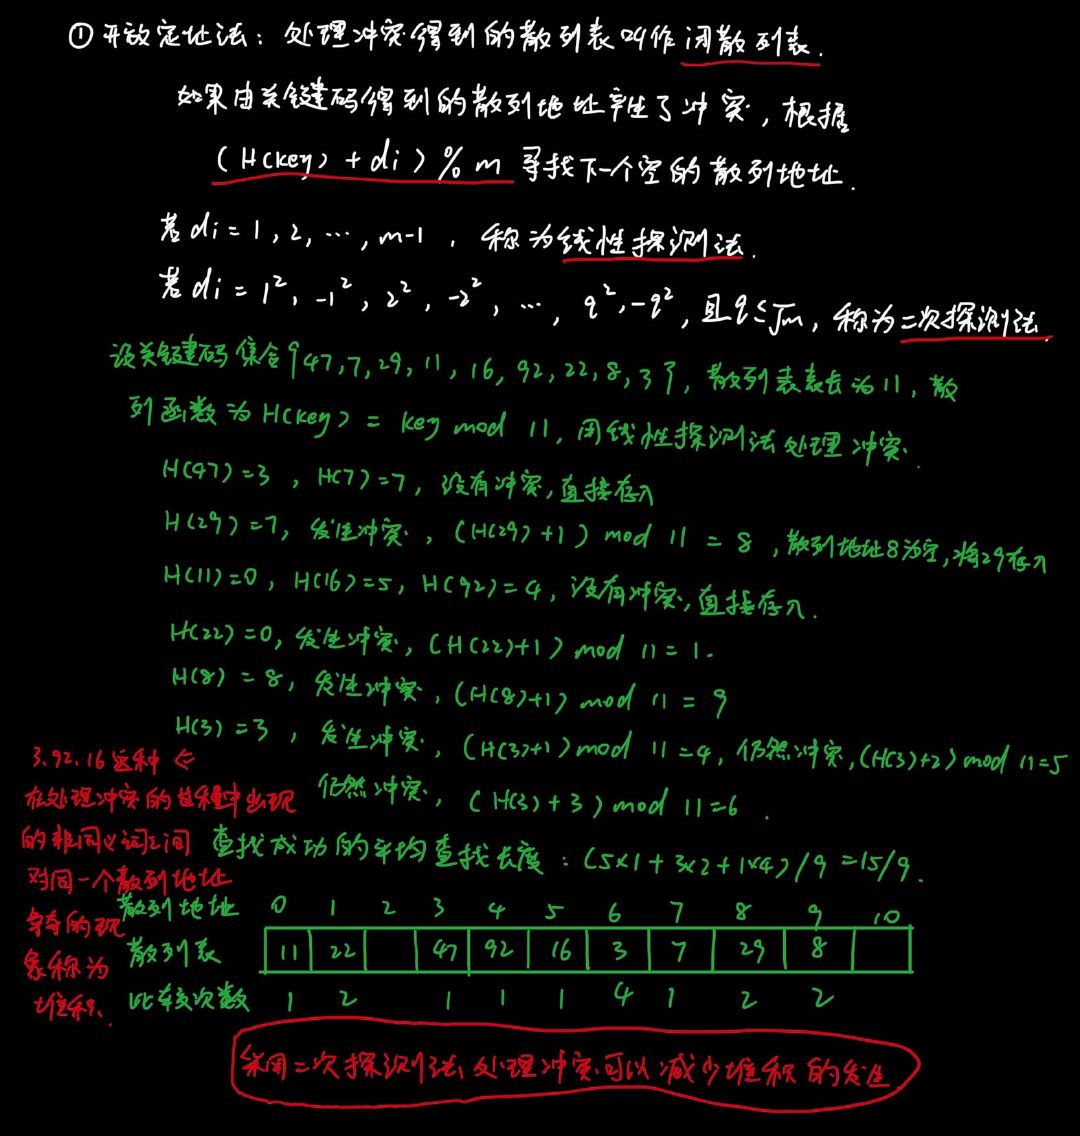 ① 开放定址法：处理冲突得到的散列表叫作闭散列表.
如果由关键码得到的散列地址产生了冲突，根据
(H(key)+di)%m 寻找下一个空的散列地址.
若di=1,2,…,m-1，称为线性探测法.
若di=1²,-1²,2²,-2²,…,q²,-q²,且q≤√m，称为二次探测法
设关键码集合{47,7,29,11,16,92,22,8,3}，散列表表长为11，散
列函数为H(key)=key mod 11，用线性探测法处理冲突.
H(47)=3，H(7)=7，没有冲突，直接存入
H(29)=7，发生冲突，(H(29)+1) mod 11=8，散列地址8为空，将29存入
H(11)=0，H(16)=5，H(92)=4，没有冲突，直接存入.
H(22)=0，发生冲突，(H(22)+1) mod 11=1.
H(8)=8，发生冲突，(H(8)+1) mod 11=9
H(3)=3，发生冲突，(H(3)+1) mod 11=4，仍然冲突，(H(3)+2) mod 11=5
仍然冲突，(H(3)+3) mod 11=6.
3.92.16这种 ⇐
在处理冲突的过程中出现
的非同义词之间
对同一个散列地址
争夺的现
象称为
堆积.
查找成功的平均查找长度：(5×1+3×2+1×4)/9=15/9.
散列地址 0 1 2 3 4 5 6 7 8 9 10
散列表 11 22 47 92 16 3 7 29 8
比较次数 1 2 1 1 1 4 1 2 2
采用二次探测法处理冲突可以减少堆积的发生